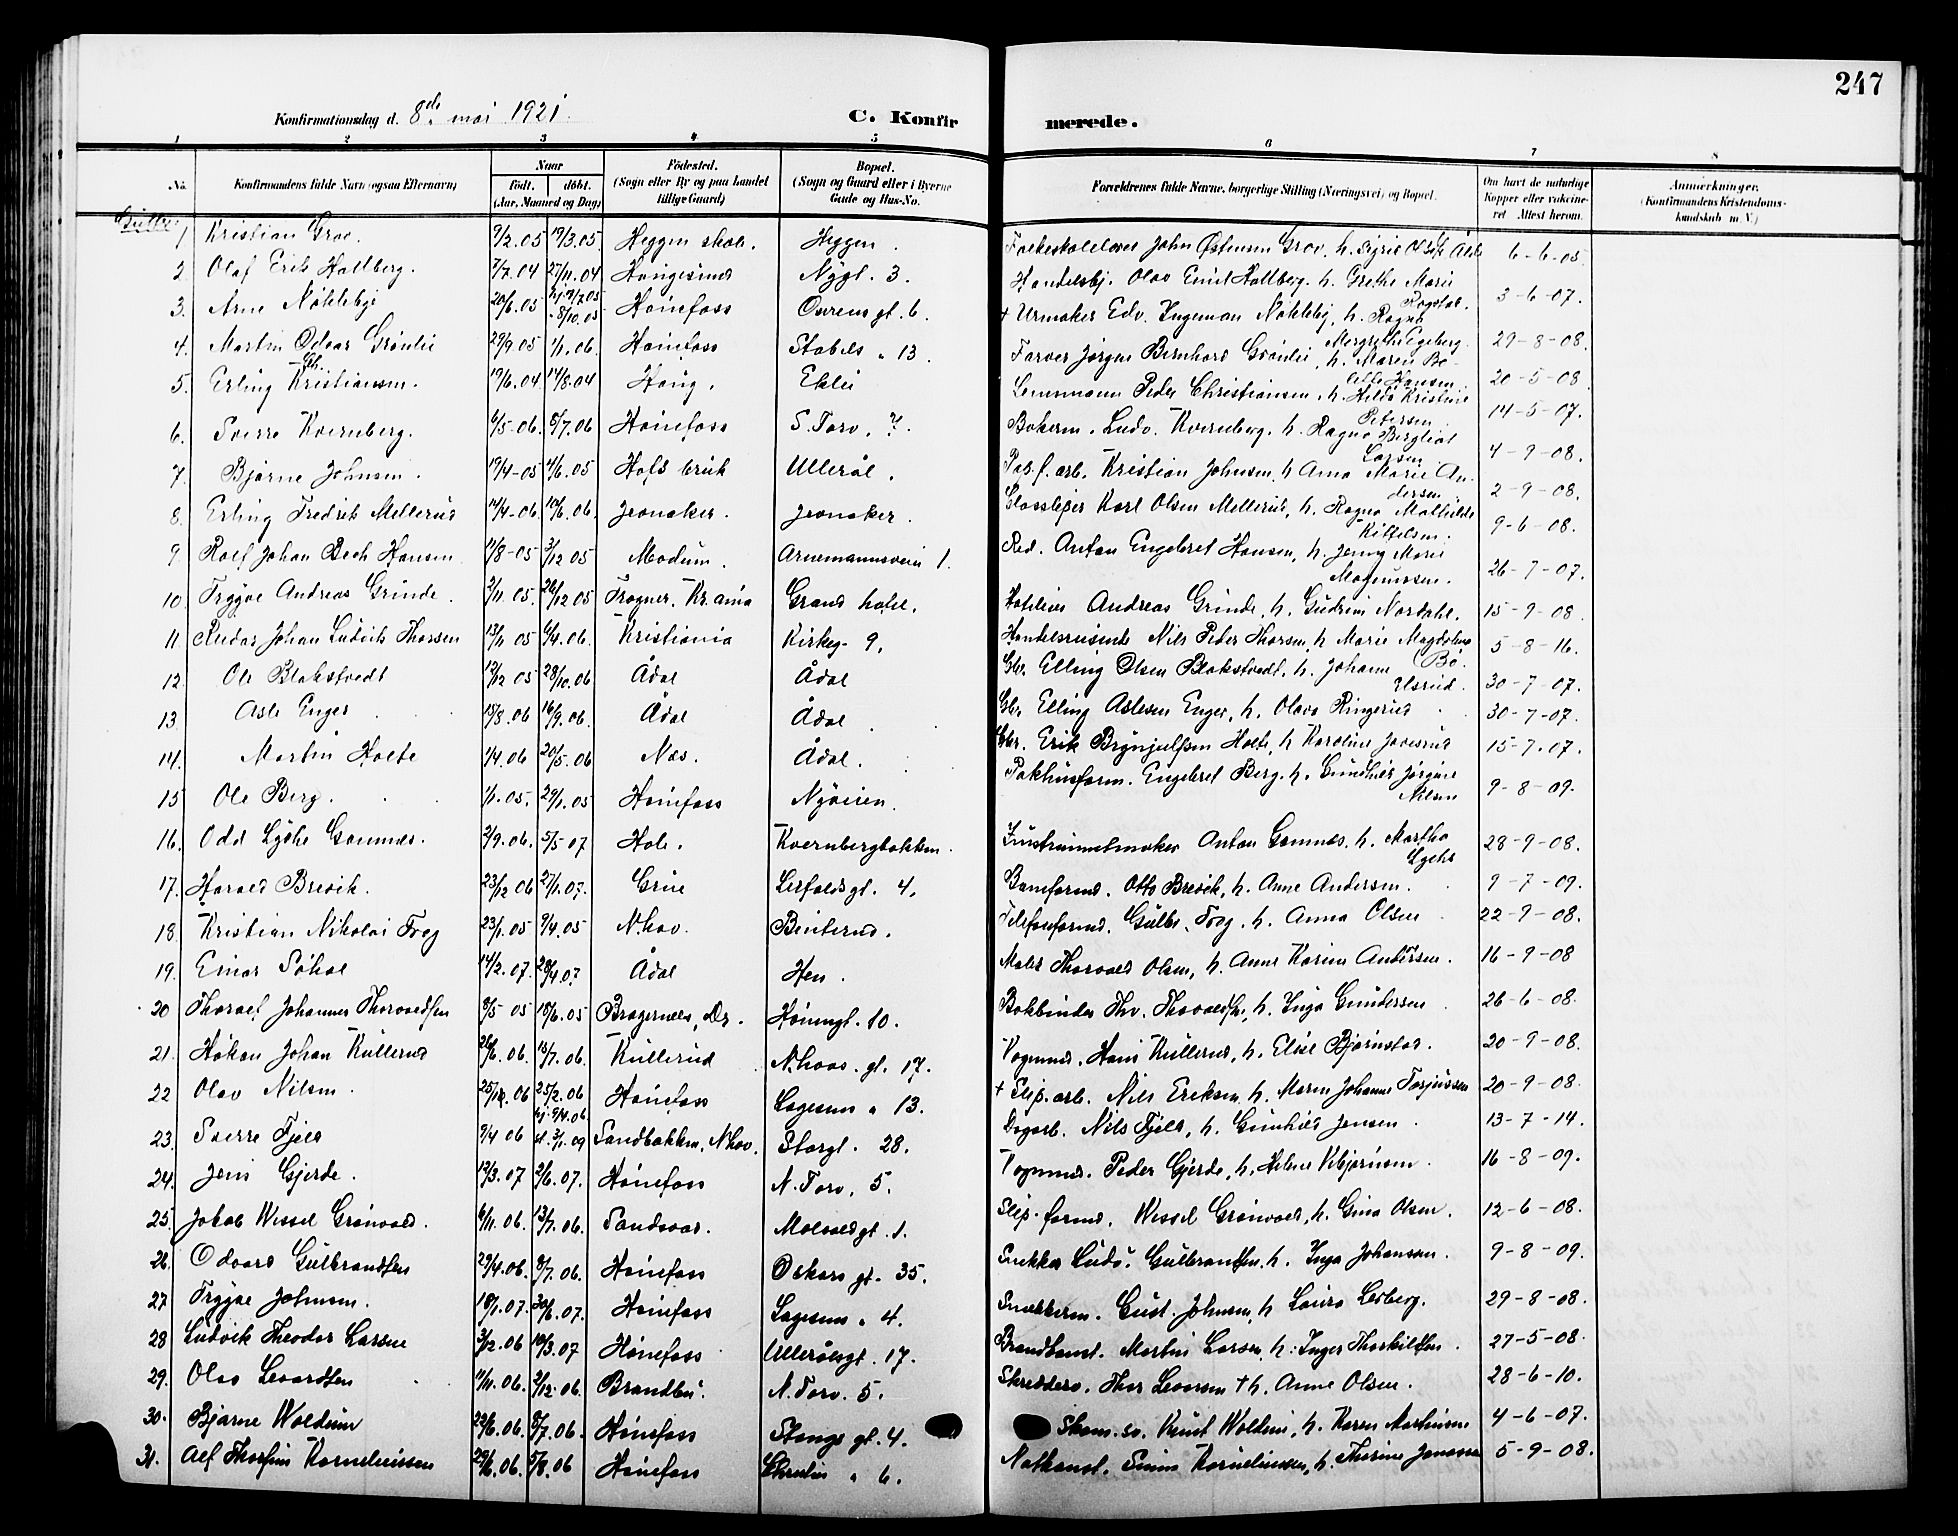 247
Konfirmationsdag d. 8de mai 1921. C. Konfirmerede.
1 2 3 4 5 6 7 8
No. Konfirmandens fulde Navn (ogsaa Efternavn) Naar födt. döbt. (Aar, Maaned og Dag) Födested. (Sogn eller By og paa Landet tillige Gaard) Bopæl. (Sogn og Gaard eller i Byerne Gade og Hus-No. Forældrenes fulde Navne, borgerlige Stilling (Næringsvei) og Bopæl. Om havt de naturlige Kopper eller vaccineret Attest herom. Anmerkninger. (Konfirmandens Kristendomskundskab m. V.)
Gutter
1 Kristian Groe. 9/2.05 19/3.05 Heggen skole. Heggen. John Østensen Groe, h. Sigrid 6-6-05.
2 Olaf Erik Hallberg. 7/7.04 27/11.04 Haugesund Nygt. 3. Handelsbj. Olav Emil Hallberg. h. Grethe Marie Rogstad. 3-6-07.
3. Arne Nökleby 20/6.05 8/10.05 Hönefoss Osrens gt. 6. + Urmaker Edv. Ingeman Nökleby, h. Ragna Mergrethe Egeberg. 29-8-08.
4. Martin Odvar Grönlie 29/9.05 1/1.06. Hönefoss Stabels " 13. Farver Jörgen Bernhard Grönlie, h. Maren Bolette Hansen. 20-5-08
5. Erling Chr. Kristiansen. 19/6.04 14/8.04 Haug. Eklei Lensmann Peder Christiansen, h. Hilda Kristine Petersen. 14-5-07.
6. Sverre Kvernberg. 6/5-06. 8/7.06 Hönefoss S. Torv. 7. Bokerm. Ludv. Kvernberg. h. Ragna Bergliot Larsen. 4-9-08.
7. Bjarne Johnsen. 19/4-05 4/6.05 Hofs bruk Ullerål. Pap.f.arb. Kristian Johnsen, h. Anna Marie Andersen. 2-9-08.
8. Erling Fredrik Mellerud 14/4-06. 10/6.06. Jevnaker. Jevnaker. Karl Olsen Mellerud, h. Ragna Mathilde Kittelsen. 9-6-08.
9. Rolf Johan Bech Hansen 11/8-05 3/12 05 Modum. Arnemannsveien 1. Red. Anton Engebret Hansen, h. Jenny Marie Magnussen. 26-7-07.
10. Trygve Andreas Grinde. 2/11.05. 26/12 05 Frogner, Kr.ania Grand hotel. Hoteleier Andreas Grinde, h. Gudrun Nordahl. 15-9-08.
11. Reidar Johan Ludvik Thorsen 13/11 05 6/4.06. Kristiania Kirkeg. 9. Handelsreisende Nils Peder Thorsen, h. Marie Magdalena Bö. 5-8-16.
12. Ole Blakstvedt 12/12 05 28/10.06 Ådal Ådal Gbr. Elling Olsen Blakstvedt, h. Johanne Elsrud. 30-7-07.
13. Asle Enger 15/8.06 16/9.06. Ådal Ådal. Gbr. Elling Aslesen Enger, h. Olava Ringerud 30-7-07.
14. Martin Holte 1/4.06 20/5-06 Næs. Ådal. Gbr. Erik Brynjulfsen Holte, h. Karoline 15-7.07.
15 Ole Berg. 1/1.05. 29/1.05 Hönefoss Nyveien. Pakhusform. Engebret Berg. h. Gunhild Jörgine Nilsen 9-8-09.
16. Odd Lyche Gomnæs. 2/9.06. 5/5-07 Hole. Kvernbergbakken. Instrumentmaker Anton Gomnæs. h. Martha Lyche 28-9-08.
17. Harald Brevik. 23/12 06 27/1.07. Grue Lerfaldsgt. 4. Baneformd. Otto Brevik, h. Anne Andersen. 9-7-09.
18 Kristian Nikolai Frog 23/1.05 9/4.05 N.hov. Benterud. Telefonformd. Gulbr. Frog, h. Anna Olsen 22-9-08.
19. Einar Søhol 14/2.07. 28/4.07. Ådal Hen. Maler Thorvald Olsen, h. Anne Karine Andersen. 16-9-08
20 Thoralf Johannes Thorvaldsen 8/5 05 18/6.05 Bragernes, Dr. Hönengt. 10. Bokbinder Thv. Thorvaldsen, h. Inga Gundersen 26-6-08.
21. Håkon Johan Kullerud 26/6.06. 15/7.06. Kullerud N.hovs. gt. 17. Vognmd. Hans Kullerud, h. Elise Björnstad. 20-9-08.
22 Olav Nilsen. 25/12.06 25/2.06 Hönefoss Lagesens " 13. + Slip.arb. Nils Eriksen, h. Maren Johanne Torjussen 20-9-08.
23. Sverre Fjeld 9/4 06 hj. 9/4.06 st. 3/1.09 Sandbakken, N.hov. Storgt. 28. Dagarb. Nils Fjeld, h. Gunhild Jensen. 13-7-14.
24. Jens Gjerde. 12/3.07 2/6.07. Hönefoss N. Torv. 5. Vognmd. Peder Gjerde, h. Helene 16-8-09.
25. Jakob Wessel Grönvold. 6/11.06. 13/7.06. Sandsvær. gt. 1. Slip. formd. Wessel Grönvold, h. Gina Olsen. 12-6-08.
26. Odvard Gulbrandsen 29/4.06. 8/7.06. Hönefoss Oskars gt. 35. Snekker Ludv. Gulbrandsen, h. Inga Johansen. 9-8-09.
27 Trygve Johnsen. 18/1.07. 30/6.07. Hönefoss Lagesens " 4. Snekkerm. Gust. Johnsen, h. Laura Lerberg. 29-8-08.
28 Ludvik Theodor Larsen 3/12.06 10/3.07 Hönefoss Ullerålsgt. 17. Brandkonst. Martin Larsen, h. Inger Thorkildsen. 27-5-08.
29. Olav Levordsen 11/11.06. 2/12.06. Brandbu. N. Torv. 5. Skreddersv. Thor Levorsen + h. Anne Olsen. 28-6-10.
30. Bjarne Woldum 22/6.06. 8/7.06. Hönefoss Stangs gt. 4. Skom.sv. Knut Woldum, h. Karen Martinsen 4-6-07.
31. Alf Thorfinn Korneliussen 29/6.06. 5/8.06 Hönefoss " 6. Natkonst. Korneliussen, h. Thrine Jonassen 5-9-08.